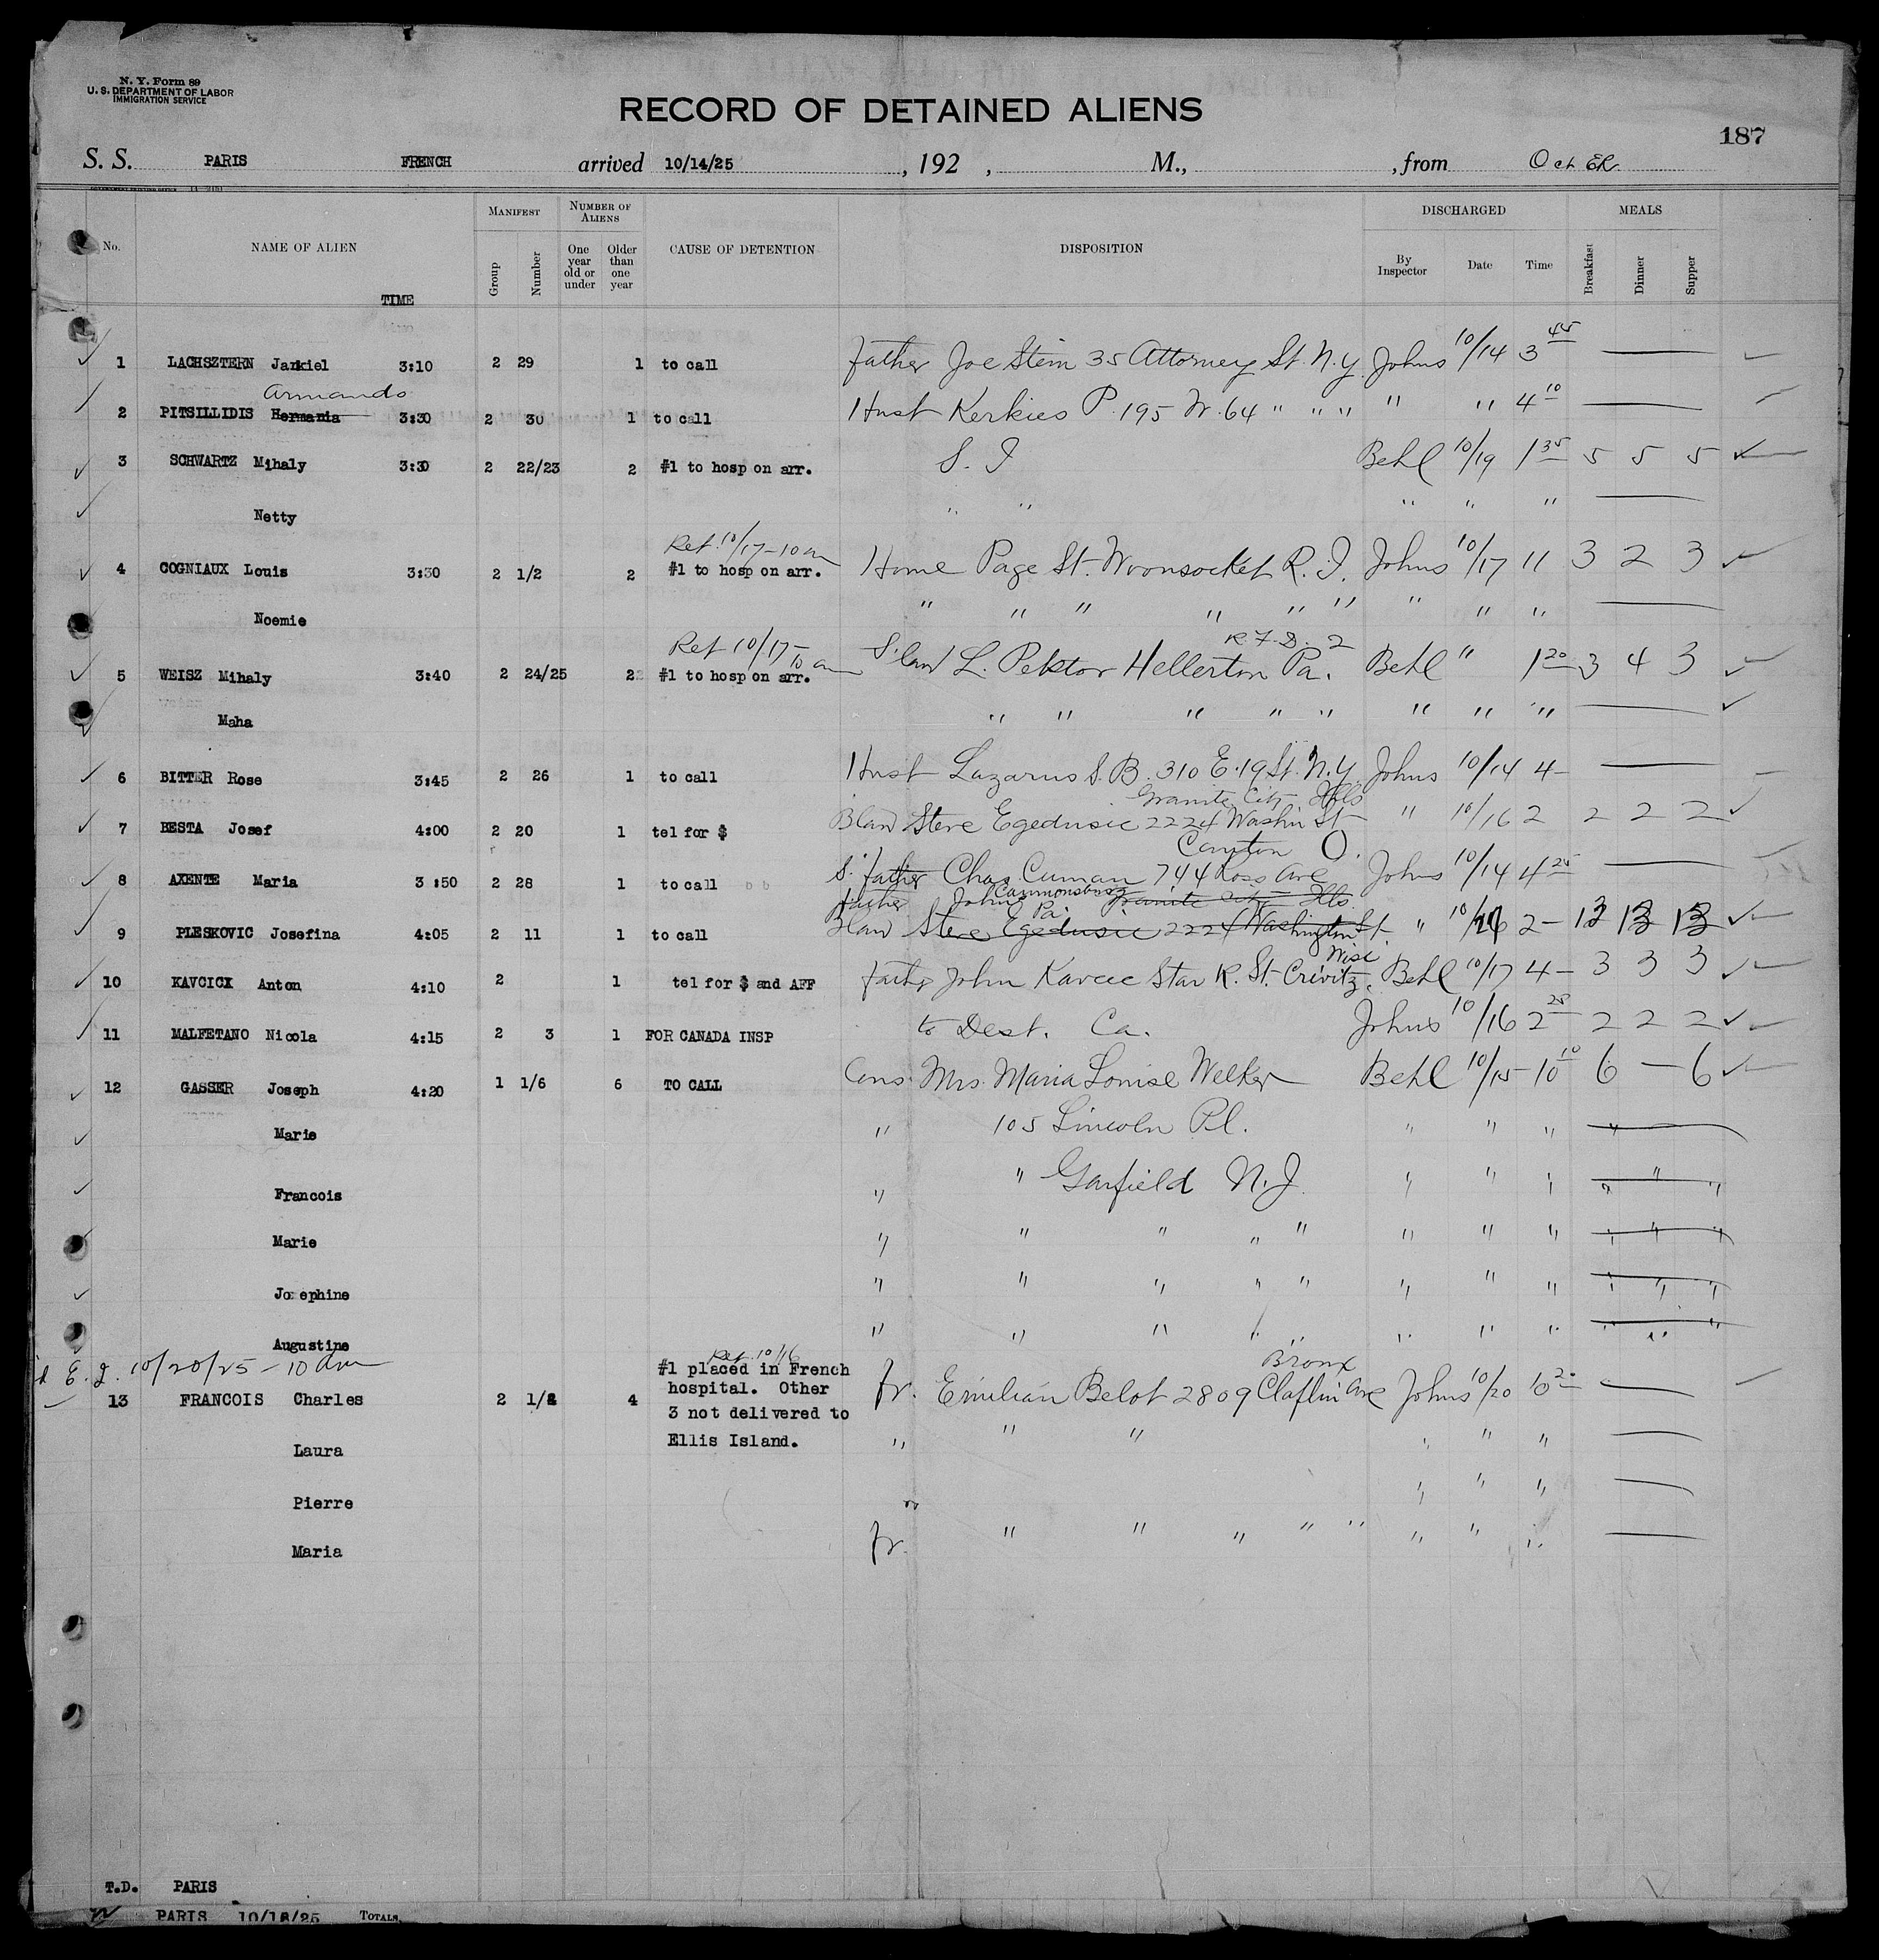 N. Y. Form 89
U. S. DEPARTMENT OF LABOR
IMMIGRATION SERVICE
RECORD OF DETAINED ALIENS
187
S. S. PARIS FRENCH arrived 10/14/25, 192 , M., , from Oct
No. NAME OF ALIEN MANIFEST NUMBER OF ALIENS CAUSE OF DETENTION DISPOSITION DISCHARGED MEALS
TIME Group Number One year old or under Older than one year By Inspector Date Time Breakfast Dinner Supper
1 LACHSZTERN Jankiel 3:10 2 29 1 to call Father Joe Stein 35 Attorney St. N.Y. Johns 10/14 3 45
Armando
2 PITSILLIDIS Hermania 3:30 2 30 1 to call Husb Kerkies P. 195 W. 64 " " " " " 4 10
3 SCHWARTZ Mihaly 3:30 2 22/23 2 #1 to hosp on arr. S. I Behl 10/19 1 35 5 5 5
Netty " " " " "
Ret. 10/17-10 am
4 COGNIAUX Louis 3:30 2 1/2 2 #1 to hosp on arr. Home Page St. Woonsocket R. I. Johns 10/17 11 3 2 3
Noemie " " " " " " " " "
Ret 10/17-10 am R.F.D. 2
5 WEISZ Mihaly 3:40 2 24/25 2 #1 to hosp on arr. S'law L. Pektor Hellerton Pa. Behl " 1 20 3 4 3
Maha " " " " " " " "
6 BITTER Rose 3:45 2 26 1 to call Husb Lazarus S. B. 310 E. 19 St. N.Y. Johns 10/14 4-
Granite City Ills
7 BESTA Josef 4:00 2 20 1 tel for $ Blaw Steve Egedusic 2224 Washin St " 10/16 2 2 2 2
Canton O.
8 AXENTE Maria 3:50 2 28 1 to call S. father Chas. Cuman 744 Ross Ave Johns 10/14 4 25
father John Cannonsburg Pa. Granite City Ills.
9 PLESKOVIC Josefina 4:05 2 11 1 to call Blaw Steve Egedusic 2224 Washington St. " 10/ 2-
Wisc
10 KAVCICX Anton 4:10 2 1 tel for $ and AFF father John Kavcic Star R. St. Crivitz. Behl 10/17 4- 3 3 3
11 MALFETANO Nicola 4:15 2 3 1 FOR CANADA INSP to Dest. Ca. Johns 10/16 2 25 2 2 2
12 GASSER Joseph 4:20 1 1/6 6 TO CALL Cous. Mrs. Maria Louise Welker Behl 10/15 10 10 6 - 6
Marie " 105 Lincoln Pl. " " " "
Francois " " Garfield N.J. " " " " " "
Marie " " " " " " " " " " "
Josephine " " " " " " " " " " "
Augustine " " " " " " " " " " "
E. I. 10/20/25 - 10 am
Ret. 10/16
13 FRANCOIS Charles 2 1/4 4 #1 placed in French hospital. Other 3 not delivered to Ellis Island. Fr. Emilian Belot 2809 Claflin Ave Bronx Johns 10/20 10 20
Laura " " " " " "
Pierre " " " "
Maria Fr. " " " " " " " "
T.D. PARIS
PARIS 10/18/25 TOTALS,